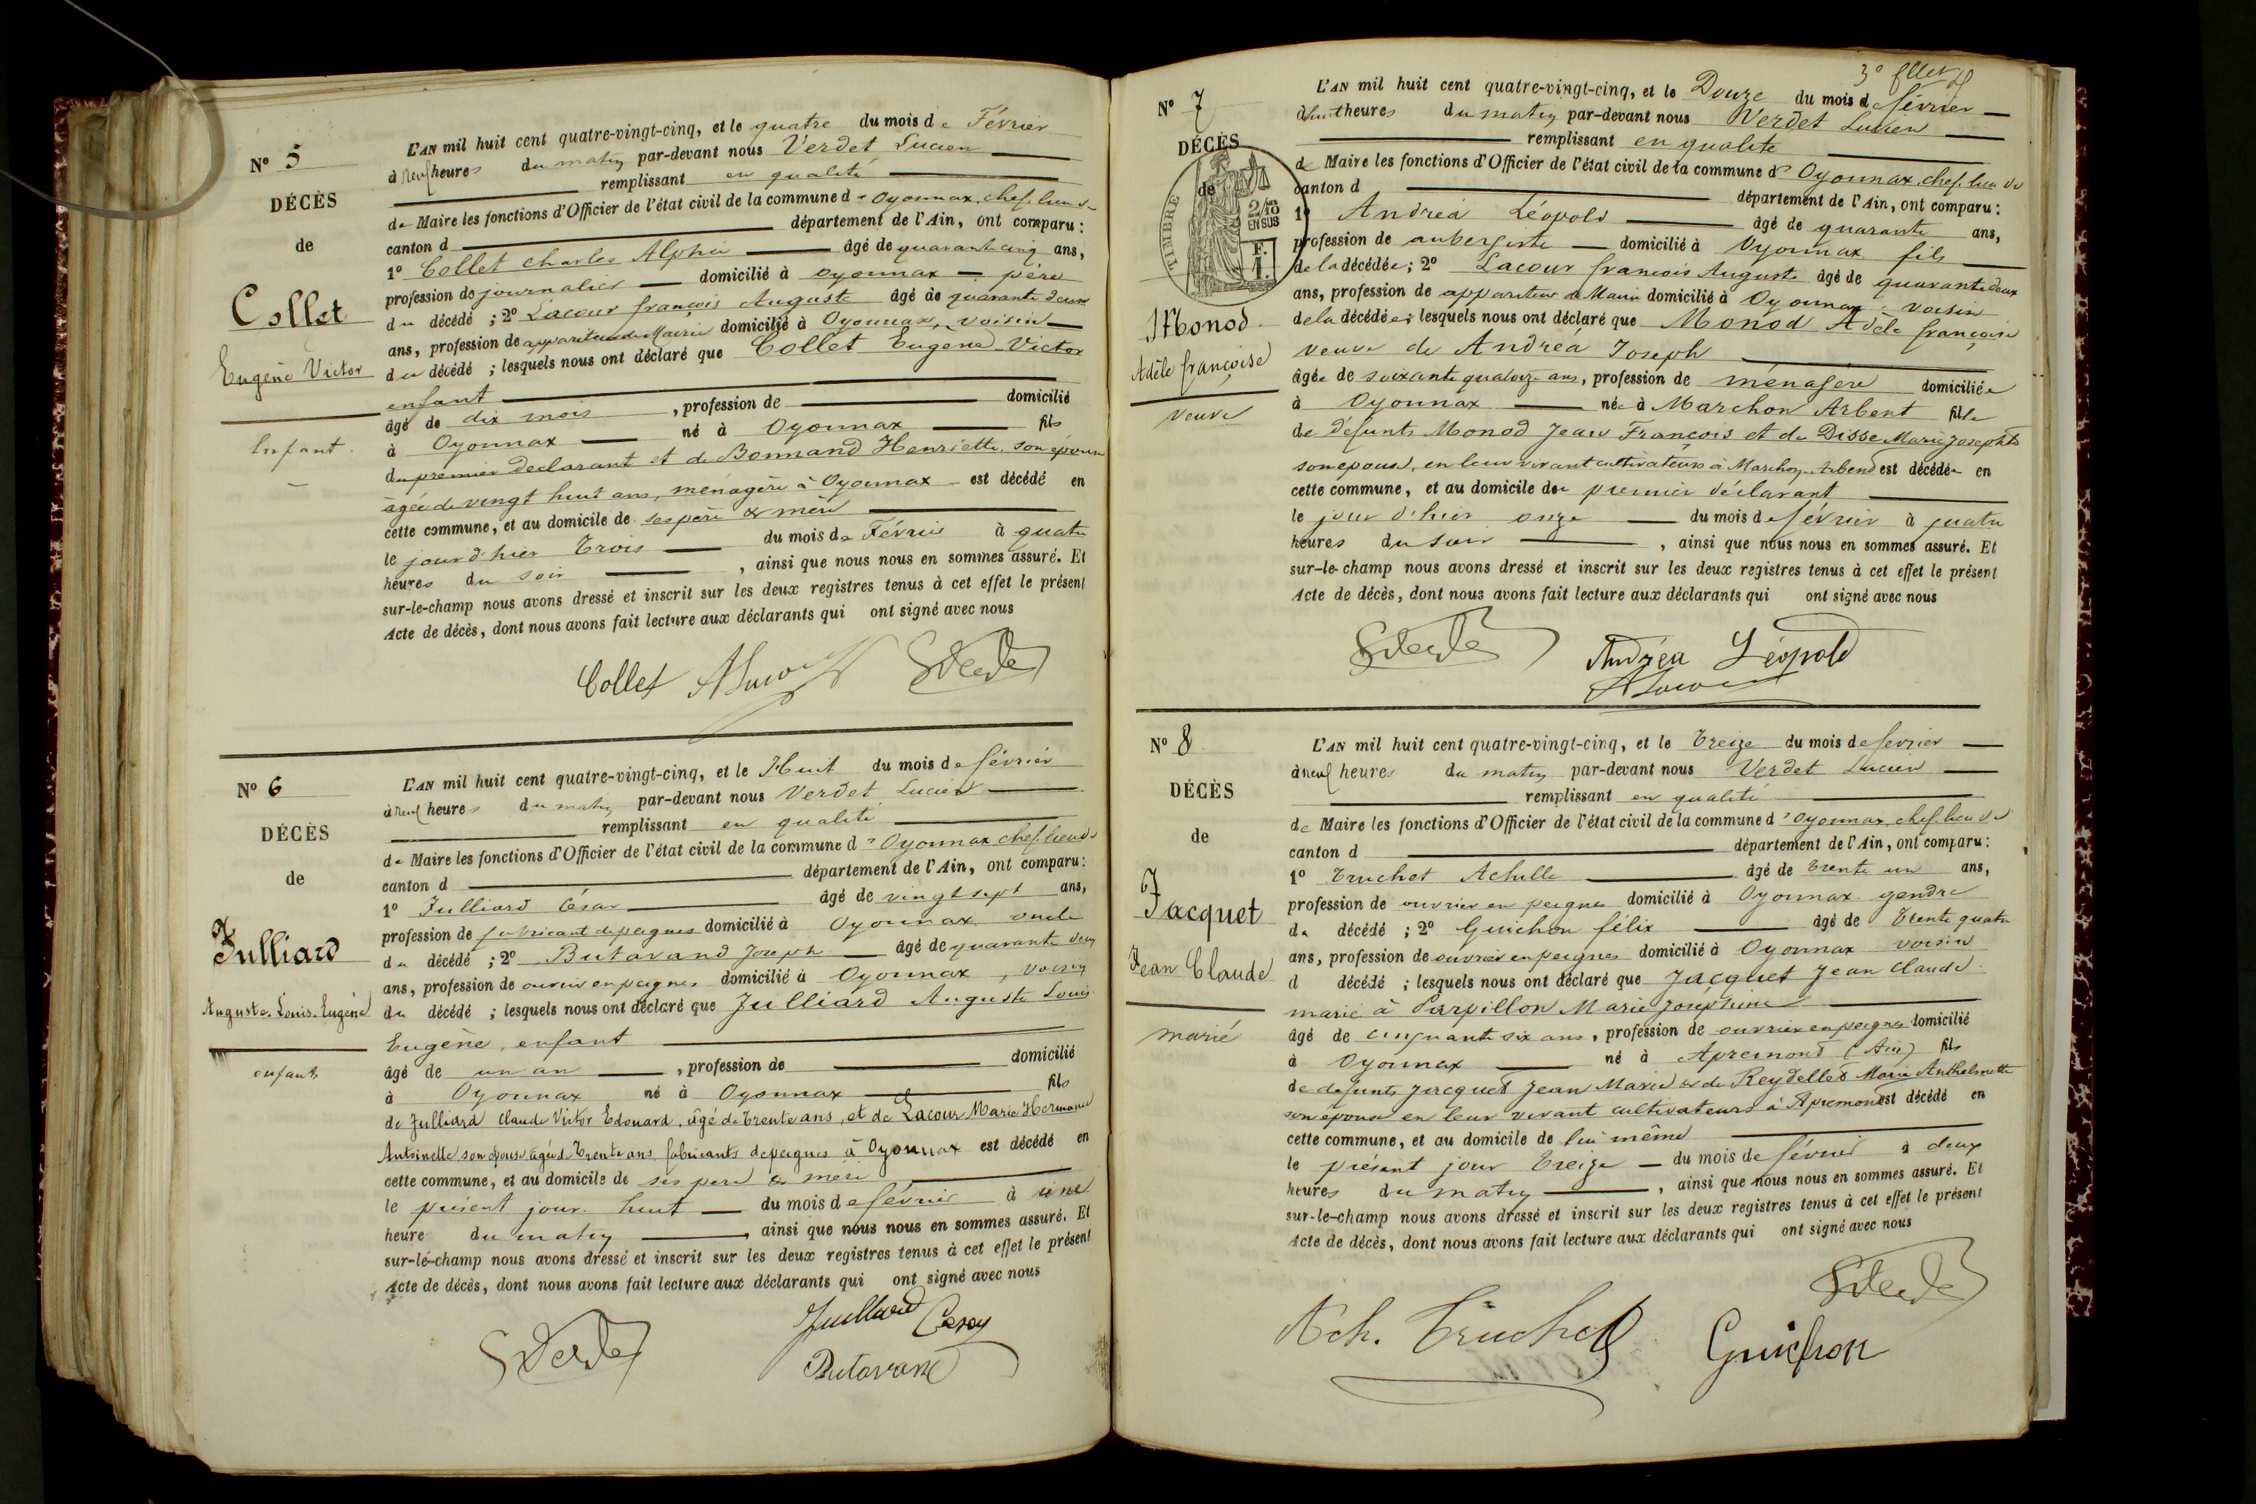 N° 5
DÉCÈS
de
Collet
Eugène Victor
Enfant
L'AN mil huit cent quatre-vingt-cinq, et le quatre du mois de Février
à neuf heures du matin par-devant nous Verdet Lucien
remplissant en qualité
de Maire les fonctions d'Officier de l'état civil de la commune d'Oyonnax, chef-lieu de
canton d département de l'Ain, ont comparu :
1° Collet Charles Alphée âgé de quarante cinq ans,
profession de journalier domicilié à Oyonnax père
du décédé ; 2° Lacour françois Auguste âgé de quarante deux
ans, profession de appariteur de Mairie domicilié à Oyonnax, voisin
du décédé ; lesquels nous ont déclaré que Collet Eugène Victor
enfant
âgé de dix mois , profession de domicilié
à Oyonnax né à Oyonnax fils
du premier déclarant et de Bonnand Henriette, son épouse
âgée de vingt huit ans, ménagère à Oyonnax est décédé en
cette commune, et au domicile de ses père & mère
le jour d'hier Trois du mois de Février à quatre
heures du soir , ainsi que nous nous en sommes assuré. Et
sur-le-champ nous avons dressé et inscrit sur les deux registres tenus à cet effet le présent
Acte de décès, dont nous avons fait lecture aux déclarants qui ont signé avec nous
Collet
N° 6
DÉCÈS
de
Julliard
Auguste. Louis. Eugène
enfant
L'AN mil huit cent quatre-vingt-cinq, et le Huit du mois de février
à neuf heures du matin par-devant nous Verdet Lucien
remplissant en qualité
de Maire les fonctions d'Officier de l'état civil de la commune d'Oyonnax chef-lieu de
canton d département de l'Ain, ont comparu :
1° Julliard César âgé de vingt sept ans,
profession de fabricant de peignes domicilié à Oyonnax oncle
du décédé ; 2° Butavand Joseph âgé de quarante deux
ans, profession de ouvrier en peignes domicilié à Oyonnax, voisin
du décédé ; lesquels nous ont déclaré que Julliard Auguste Louis
Eugène, enfant
âgé de un an , profession de domicilié
à Oyonnax né à Oyonnax fils
de Julliard Claude Victor Edouard, âgé de Trente ans, et de Lacour Marie Hermance
Antoinette son épouse âgée de Trente ans fabricants de peignes à Oyonnax est décédé en
cette commune, et au domicile de ses père & mère
le présent jour huit du mois de février à une
heure du matin , ainsi que nous nous en sommes assuré. Et
sur-le-champ nous avons dressé et inscrit sur les deux registres tenus à cet effet le présent
Acte de décès, dont nous avons fait lecture aux déclarants qui ont signé avec nous
Julliard César
Butavand
3° fllet
N° 7
DÉCÈS
de
TIMBRE
2/10 EN SUS
Monod
Adèle françoise
veuve
L'AN mil huit cent quatre-vingt-cinq, et le Douze du mois de février
à huit heures du matin par-devant nous Verdet Lucien
remplissant en qualité
de Maire les fonctions d'Officier de l'état civil de la commune d'Oyonnax, chef-lieu de
canton d département de l'Ain, ont comparu :
1° Andréa Léopold âgé de quarante ans,
profession de aubergiste domicilié à Oyonnax fils
de la décédée ; 2° Lacour françois Auguste âgé de quarante deux
ans, profession de appariteur de Mairie domicilié à Oyonnax voisin
de la décédée ; lesquels nous ont déclaré que Monod Adèle françoise
veuve de Andréa Joseph
âgée de soixante quatorze ans, profession de ménagère domiciliée
à Oyonnax née à Marchon Arbent fille
de défunts Monod Jean François et de Disse Marie Josephte
son épouse, en leur vivant cultivateurs à Marchon Arbend est décédée en
cette commune, et au domicile du premier déclarant
le jour d'hier onze du mois de février à quatre
heures du soir , ainsi que nous nous en sommes assuré. Et
sur-le-champ nous avons dressé et inscrit sur les deux registres tenus à cet effet le présent
Acte de décès, dont nous avons fait lecture aux déclarants qui ont signé avec nous
Andréa Léopold
N° 8
DÉCÈS
de
Jacquet
Jean Claude
marié
L'AN mil huit cent quatre-vingt-cinq, et le Treize du mois de février
à neuf heures du matin par-devant nous Verdet Lucien
remplissant en qualité
de Maire les fonctions d'Officier de l'état civil de la commune d'Oyonnax, chef-lieu de
canton d département de l'Ain, ont comparu :
1° Truchet Achille âgé de trente un ans,
profession de ouvrier en peignes domicilié à Oyonnax gendre
du décédé ; 2° Guichon félix âgé de Trente quatre
ans, profession de ouvrier en peignes domicilié à Oyonnax voisin
d décédé ; lesquels nous ont déclaré que Jacquet Jean Claude
marié à Parpillon Marie Joséphine
âgé de cinquante six ans, profession de ouvrier en peignes domicilié
à Oyonnax né à Apremont (Ain) fils
de défunts Jacquet Jean Marie & de Reydellet Marie Anthelmette
son épouse en leur vivant cultivateurs à Apremont est décédé en
cette commune, et au domicile de lui même
le présent jour Treize du mois de février à deux
heures du matin , ainsi que nous nous en sommes assuré. Et
sur-le-champ nous avons dressé et inscrit sur les deux registres tenus à cet effet le présent
Acte de décès, dont nous avons fait lecture aux déclarants qui ont signé avec nous
Ach. Truchet
Guichon